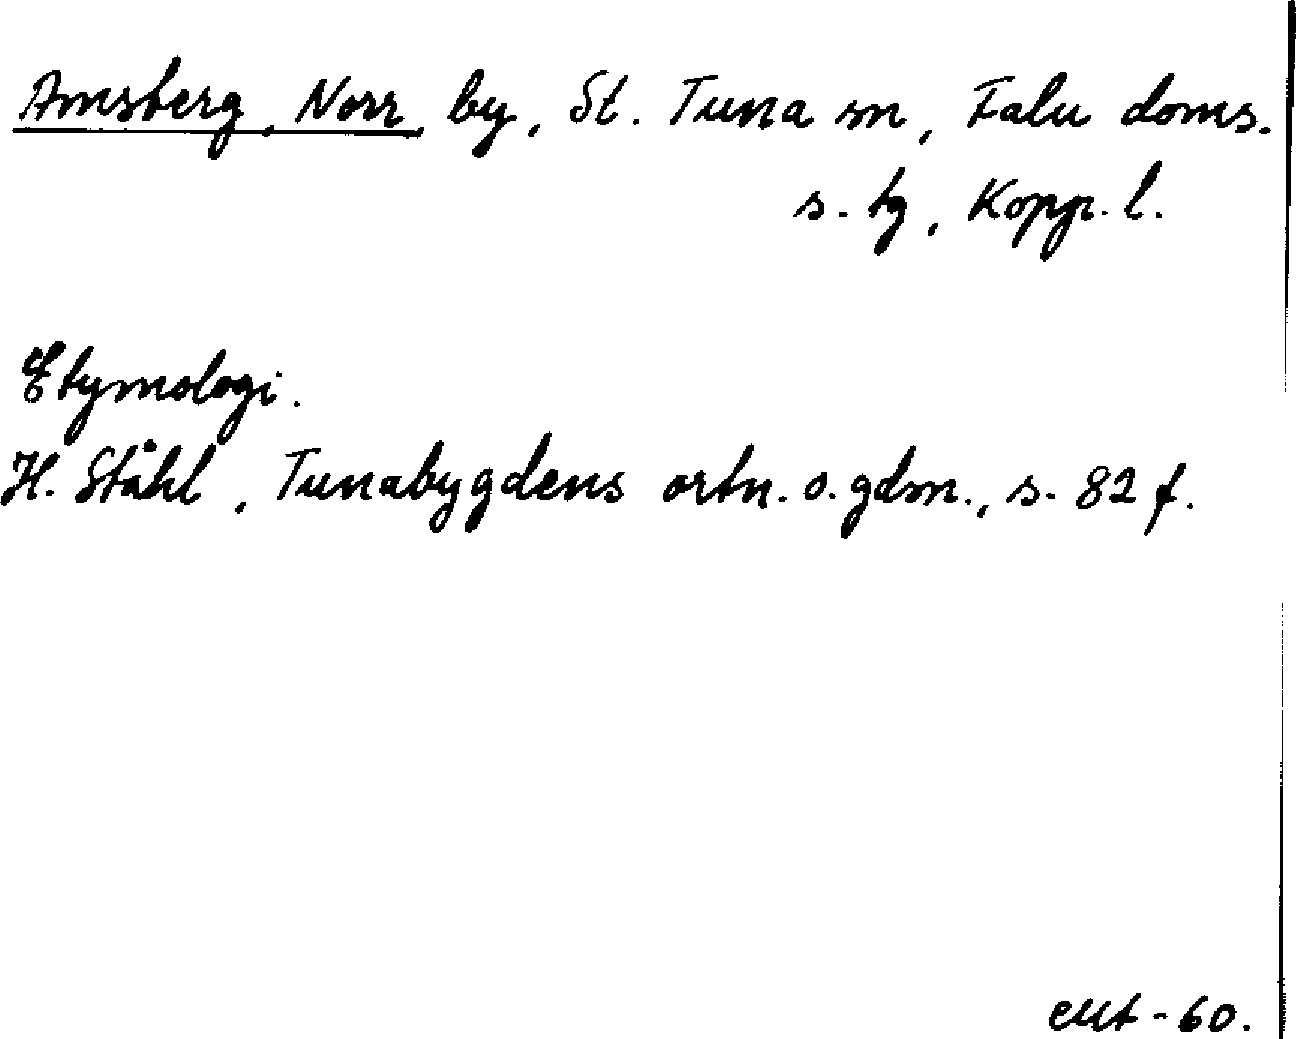 Amsberg, Norr by, St. Tuna sn, Falu doms.
s. tg, Kopp. l.
Etymologi.
H. Ståhl, Tunabygdens ortn. o. gdm., s. 82 f.
-60.